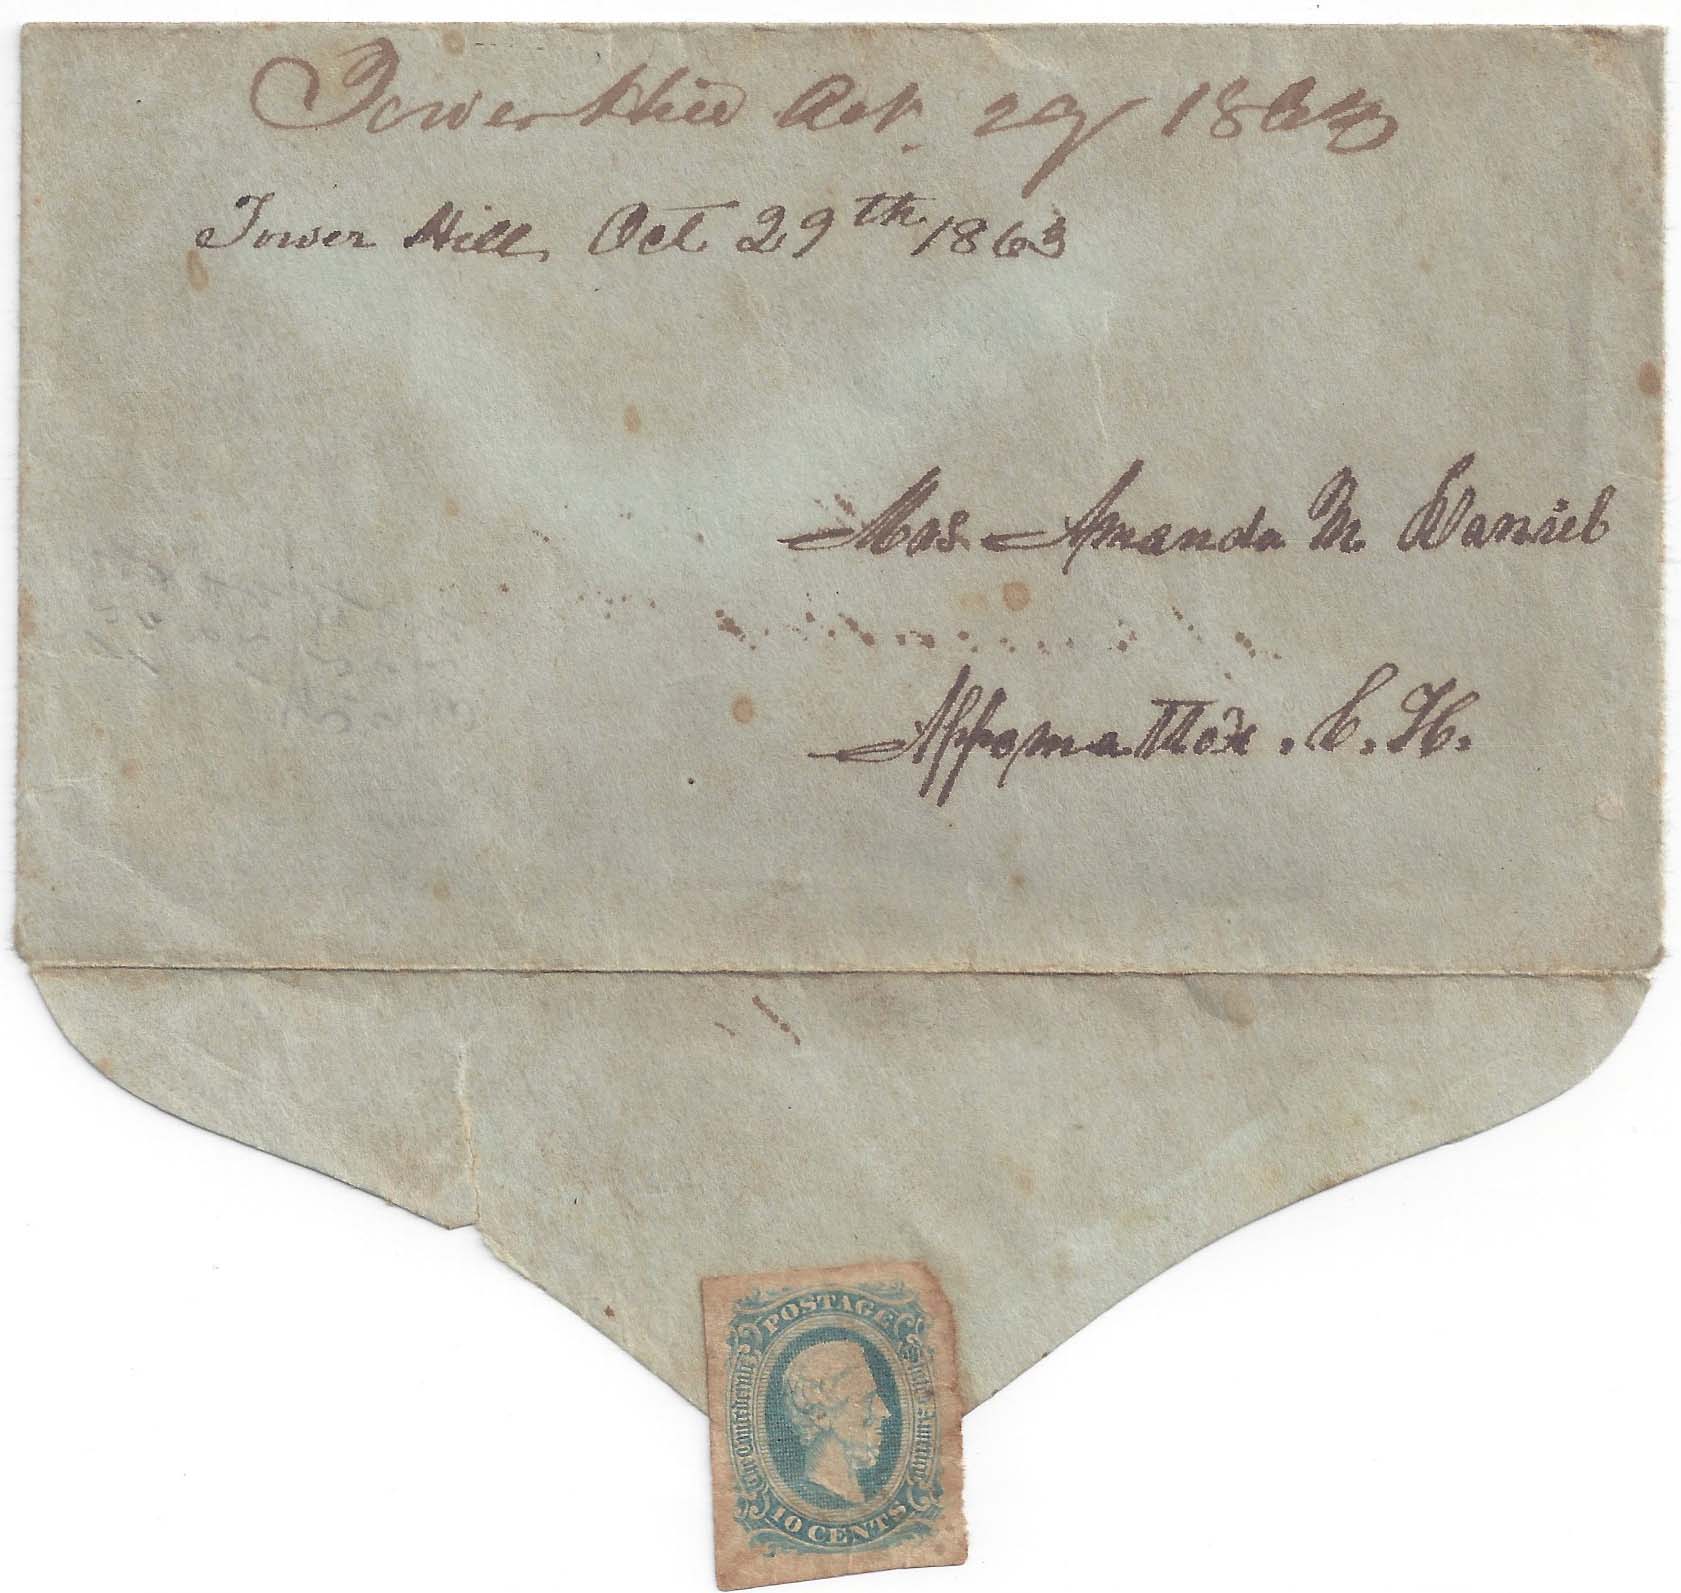 Tower Hill Oct. 29 1863
Tower Hill, Oct 29th 1863
Mrs Amanda M. Daniel
Appomattox. C. H.
POSTAGE
The Confederate States of America
10 CENTS